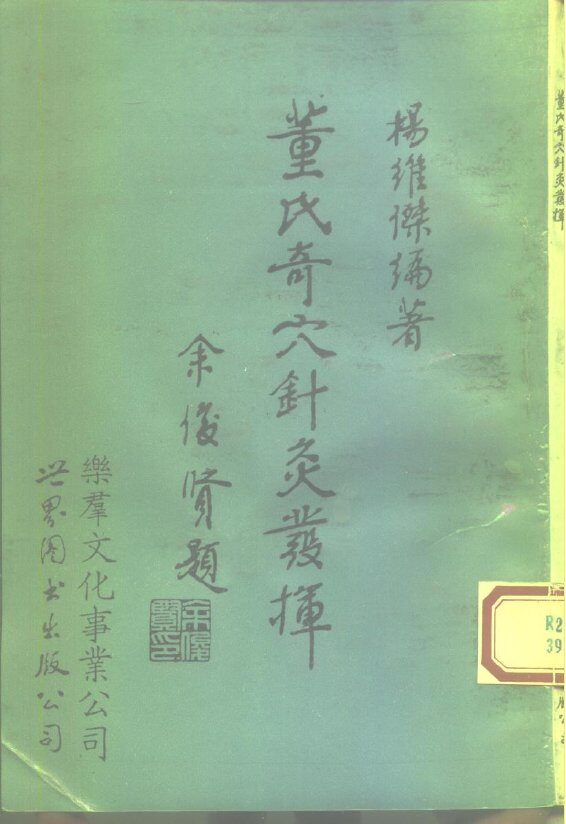 楊維傑編著
董氏奇穴針灸發揮
余俊賢題
余俊賢印
樂羣文化事業公司
世界图书出版公司
董氏奇穴針灸發揮
R2
39
版公司